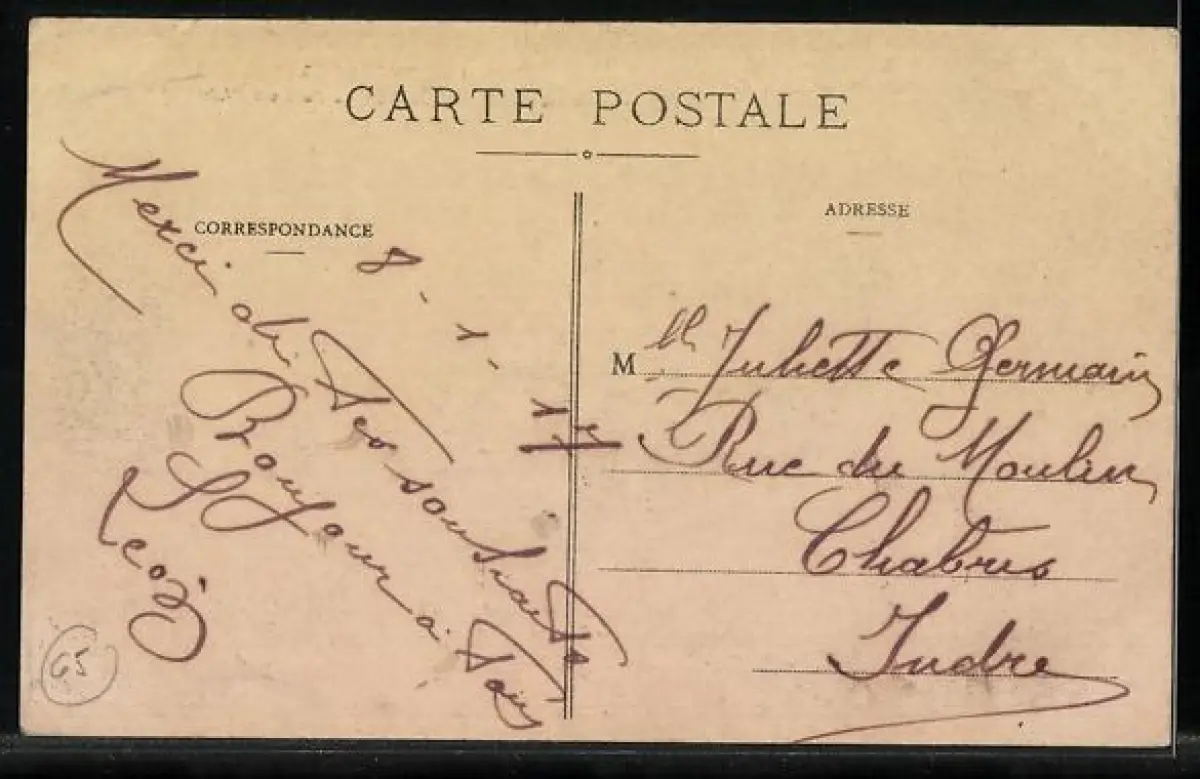 CARTE POSTALE
CORRESPONDANCE
ADRESSE
8-1-17
Merci di tes souhaits
Bonjour à tous
Léo
Mlle Juliette Germain
Rue du Moulin
Chabris
Indre
65